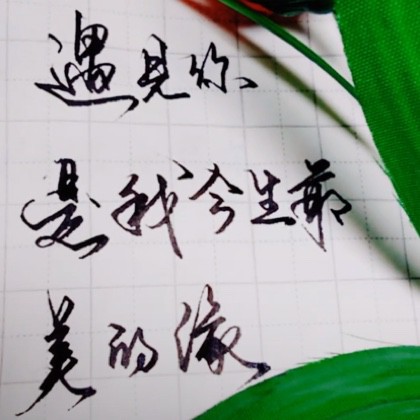 遇见你
是我今生最
美的缘